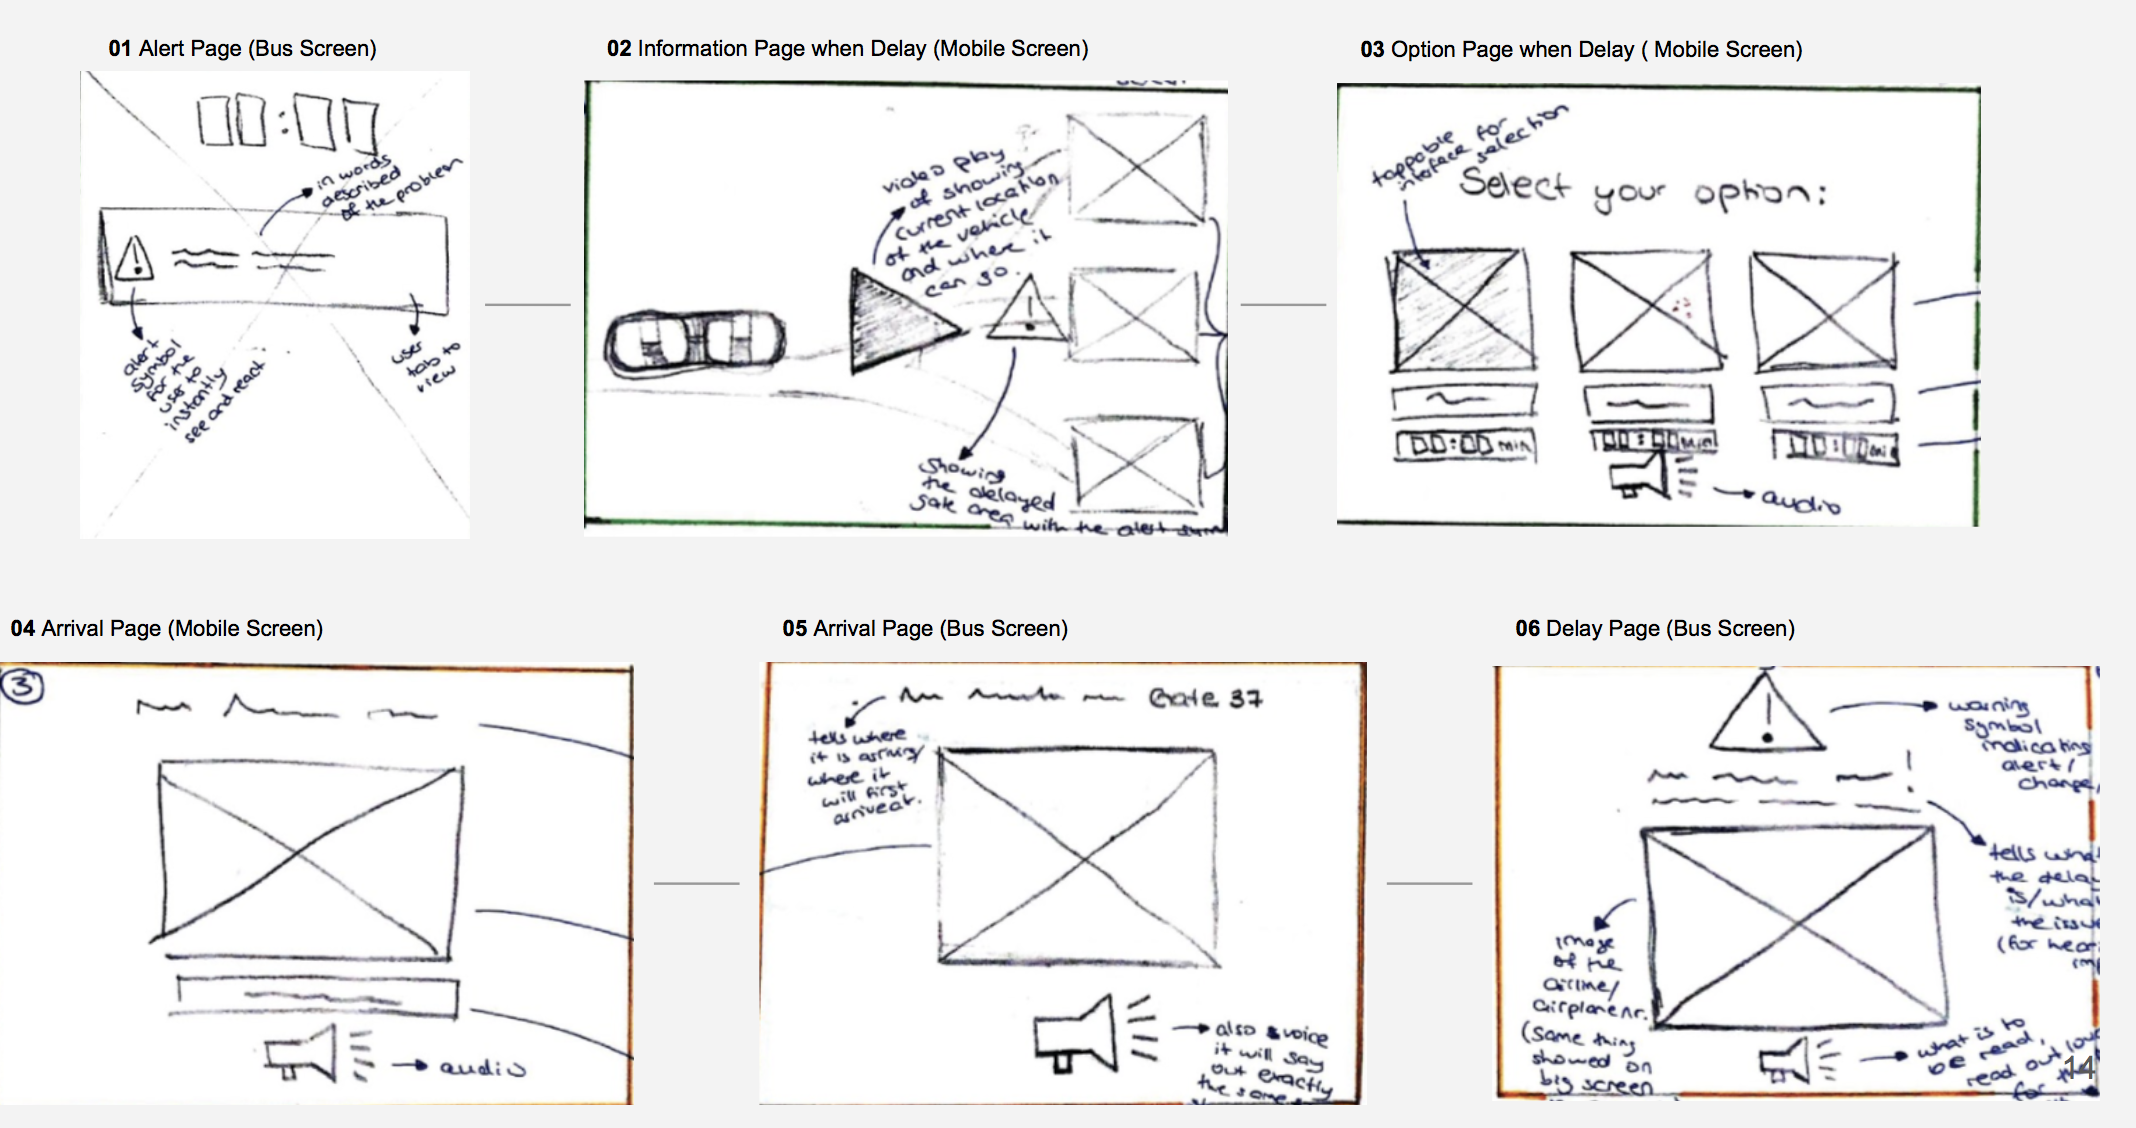 01 Alert Page (Bus Screen)
in words
described
of the problem
alert
symbol
for the
user to
instantly
see and react
user
tabs to
view
02 Information Page when Delay (Mobile Screen)
video play
of showing
current location
of the vehicle
and where it
can go.
showing
the delayed
area with the alert
03 Option Page when Delay ( Mobile Screen)
tappable for
interface selection
Select your option:
00:00 min
00:00 min
00:00 min
audio
04 Arrival Page (Mobile Screen)
3
audio
05 Arrival Page (Bus Screen)
Gate 37
tells where
it is arriving/
where it
will first
arrive at.
also voice
it will say
out exactly
the same
06 Delay Page (Bus Screen)
warning
symbol
indicating
alert/
change
tells wha
the dela
is/wha
the issu
(for hear
im
image
of the
airline/
airplane nr.
(same thing
showed on
big screen
what is to
be read,
read out lou
for
14